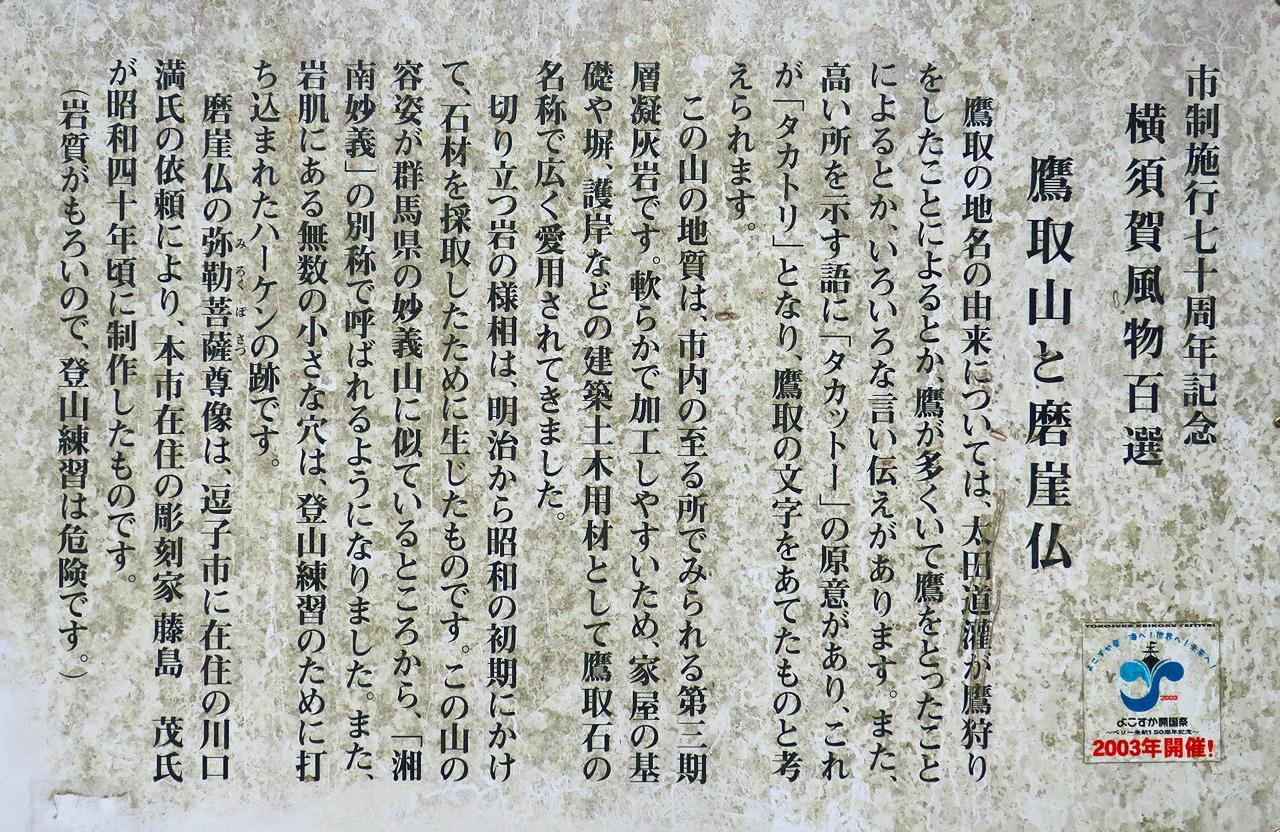 市制施行七十周年記念
横須賀風物百選
鷹取山と磨崖仏
鷹取の地名の由来については、太田道灌が鷹狩り
をしたことによるとか、鷹が多くいて鷹をとったこと
によるとか、いろいろな言い伝えがあります。また、
高い所を示す語に「タカットー」の原意があり、これ
が「タカトリ」となり、鷹取の文字をあてたものと考
えられます。
この山の地質は、市内の至る所でみられる第三期
層凝灰岩です。軟らかで加工しやすいため、家屋の基
礎や塀、護岸などの建築土木用材として鷹取石の
名称で広く愛用されてきました。
切り立つ岩の様相は、明治から昭和の初期にかけ
て、石材を採取したために生じたものです。この山の
容姿が群馬県の妙義山に似ているところから、「湘
南妙義」の別称で呼ばれるようになりました。また、
岩肌にある無数の小さな穴は、登山練習のために打
ち込まれたハーケンの跡です。
磨崖仏の弥勒菩薩尊像は、逗子市に在住の川口
みろくぼさつ
満氏の依頼により、本市在住の彫刻家 藤島 茂氏
が昭和四十年頃に制作したものです。
(岩質がもろいので、登山練習は危険です。)
YOKOSUKA KAIKOKU FESTIVAL
よこすか発 海へ!世界へ!未来へ!
2003
よこすか開国祭
〜ペリー来航150周年記念〜
2003年開催!